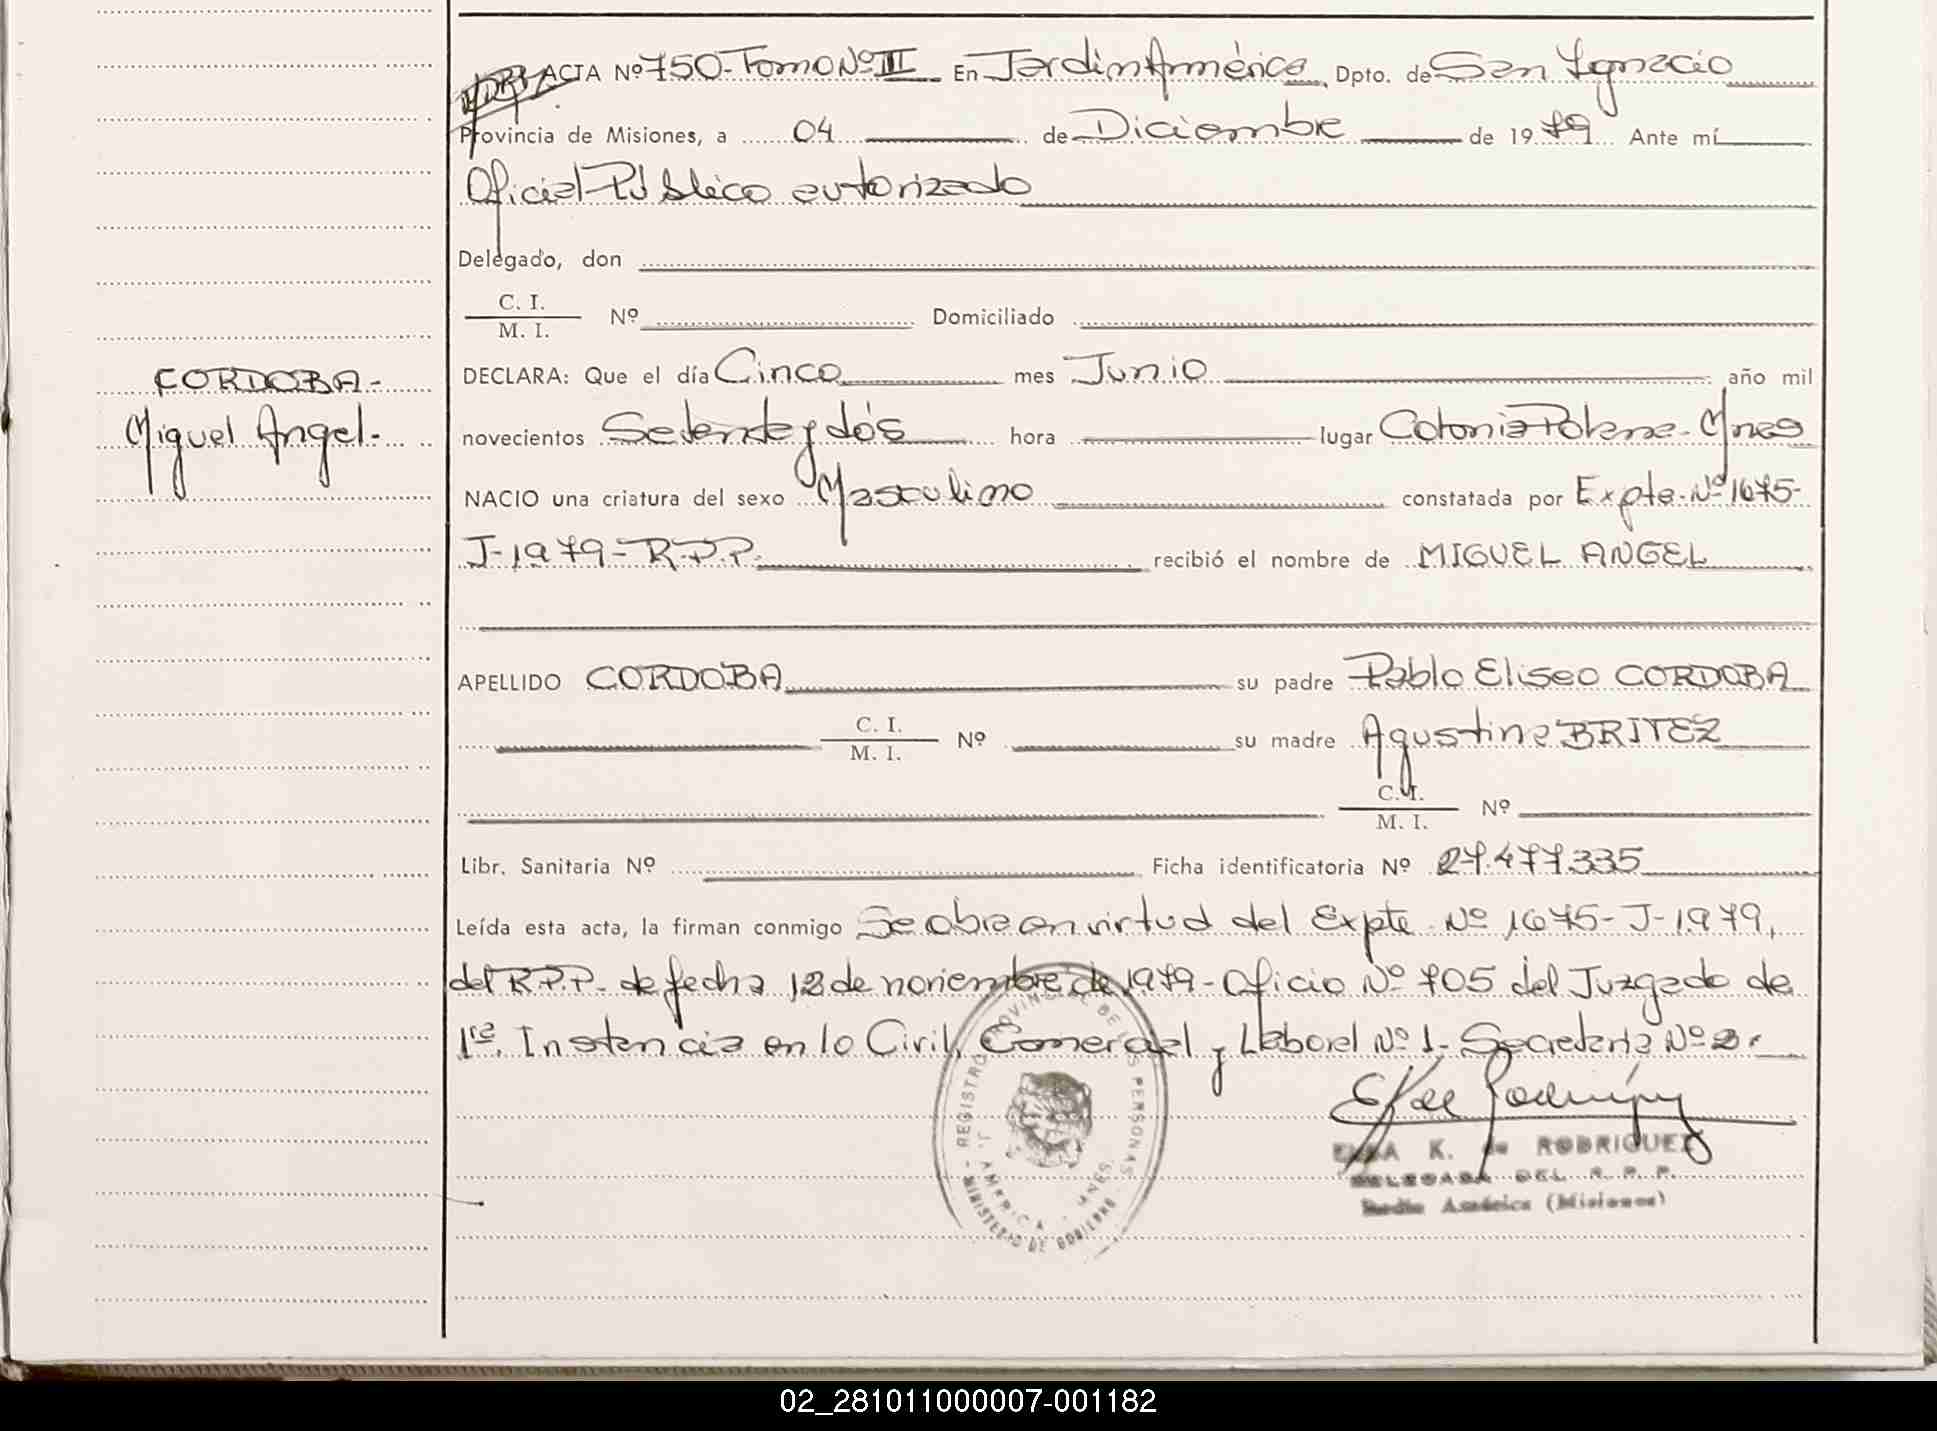 ACTA Nº 750- Tomo Nº III En Jardin América, Dpto. de San Ignacio
Provincia de Misiones, a 04 de Diciembre de 1979 Ante mí
Oficial Público autorizado
Delegado, don
C. I.
M. I.
Nº Domiciliado
CORDOBA-
Miguel Angel-
DECLARA: Que el día Cinco mes Junio año mil
novecientos Setenta y dós hora lugar Colonia Polana- Mnes
NACIO una criatura del sexo Masculino constatada por Expte. Nº 1675-
J-1979-R.P.P. recibió el nombre de MIGUEL ANGEL
APELLIDO CORDOBA su padre Pablo Eliseo CORDOBA
C. I.
M. I.
Nº su madre Agustina BRITEZ
C. I.
M. I.
Nº
Libr. Sanitaria Nº Ficha identificatoria Nº 27.477.335
Leída esta acta, la firman conmigo Se abre en virtud del Expte Nº 1675-J-1979,
del R.P.P. de fecha 12 de noviembre de 1979- Oficio Nº 705 del Juzgado de
1ra. Instancia en lo Civil, Comercial y Laboral Nº 1- Secretaria Nº 2.
REGISTRO PROVINCIAL DE LAS PERSONAS
J. AMERICA - MNES.
MINISTERIO DE GOBIERNO
ELSA K. de RODRIGUEZ
DELEGADA DEL R. P. P.
Jardín América (Misiones)
02_281011000007-001182